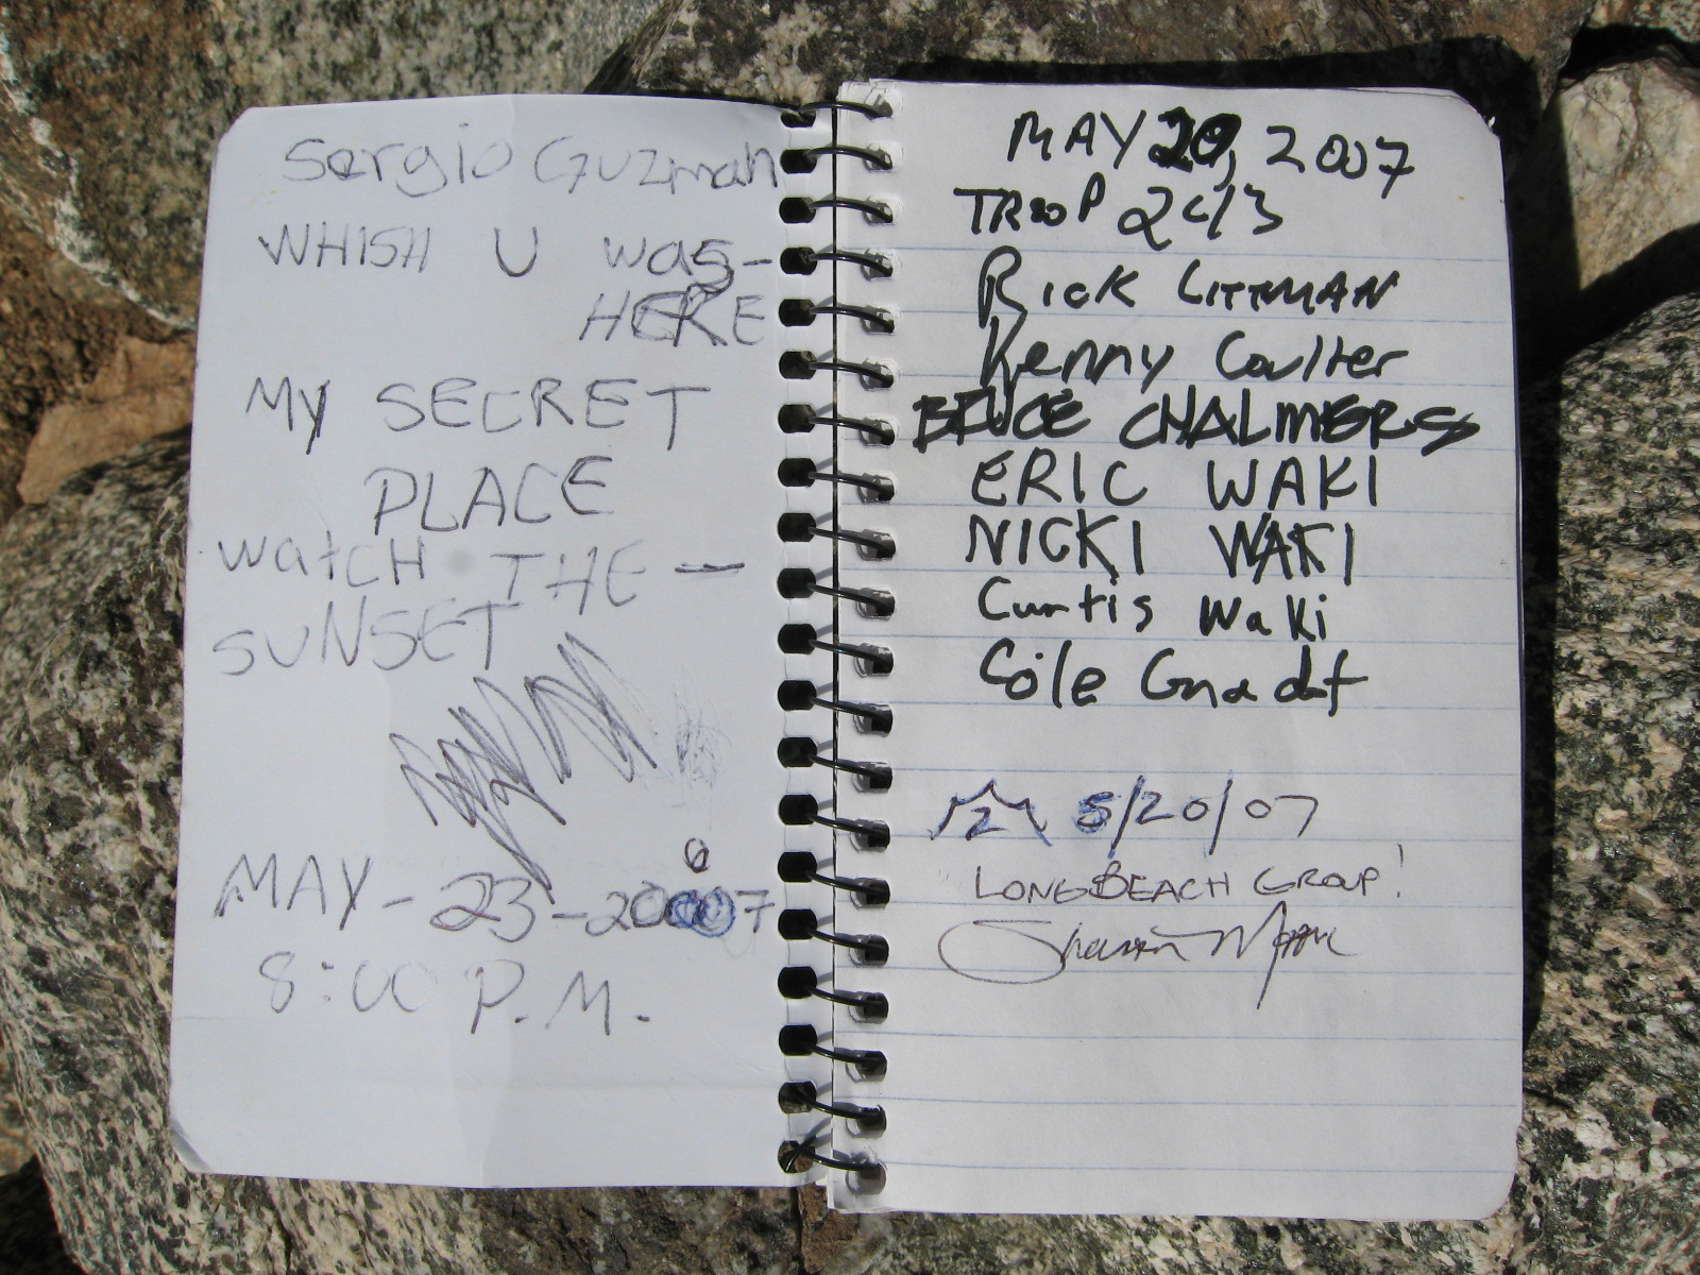 Sergio Guzman
WHISH U was-
HERE
My SECRET
PLACE
watCH THE —
SUNSET
MAY - 23 - 2007
8:00 P.M.
MAY 20, 2007
TROOP 243
Rick LITTMAN
Kenny Coulter
BRUCE CHALMERS
ERIC WAKI
NICKI WAKI
Curtis Waki
Cole Gnadt
5/20/07
LONGBEACH GROUP!